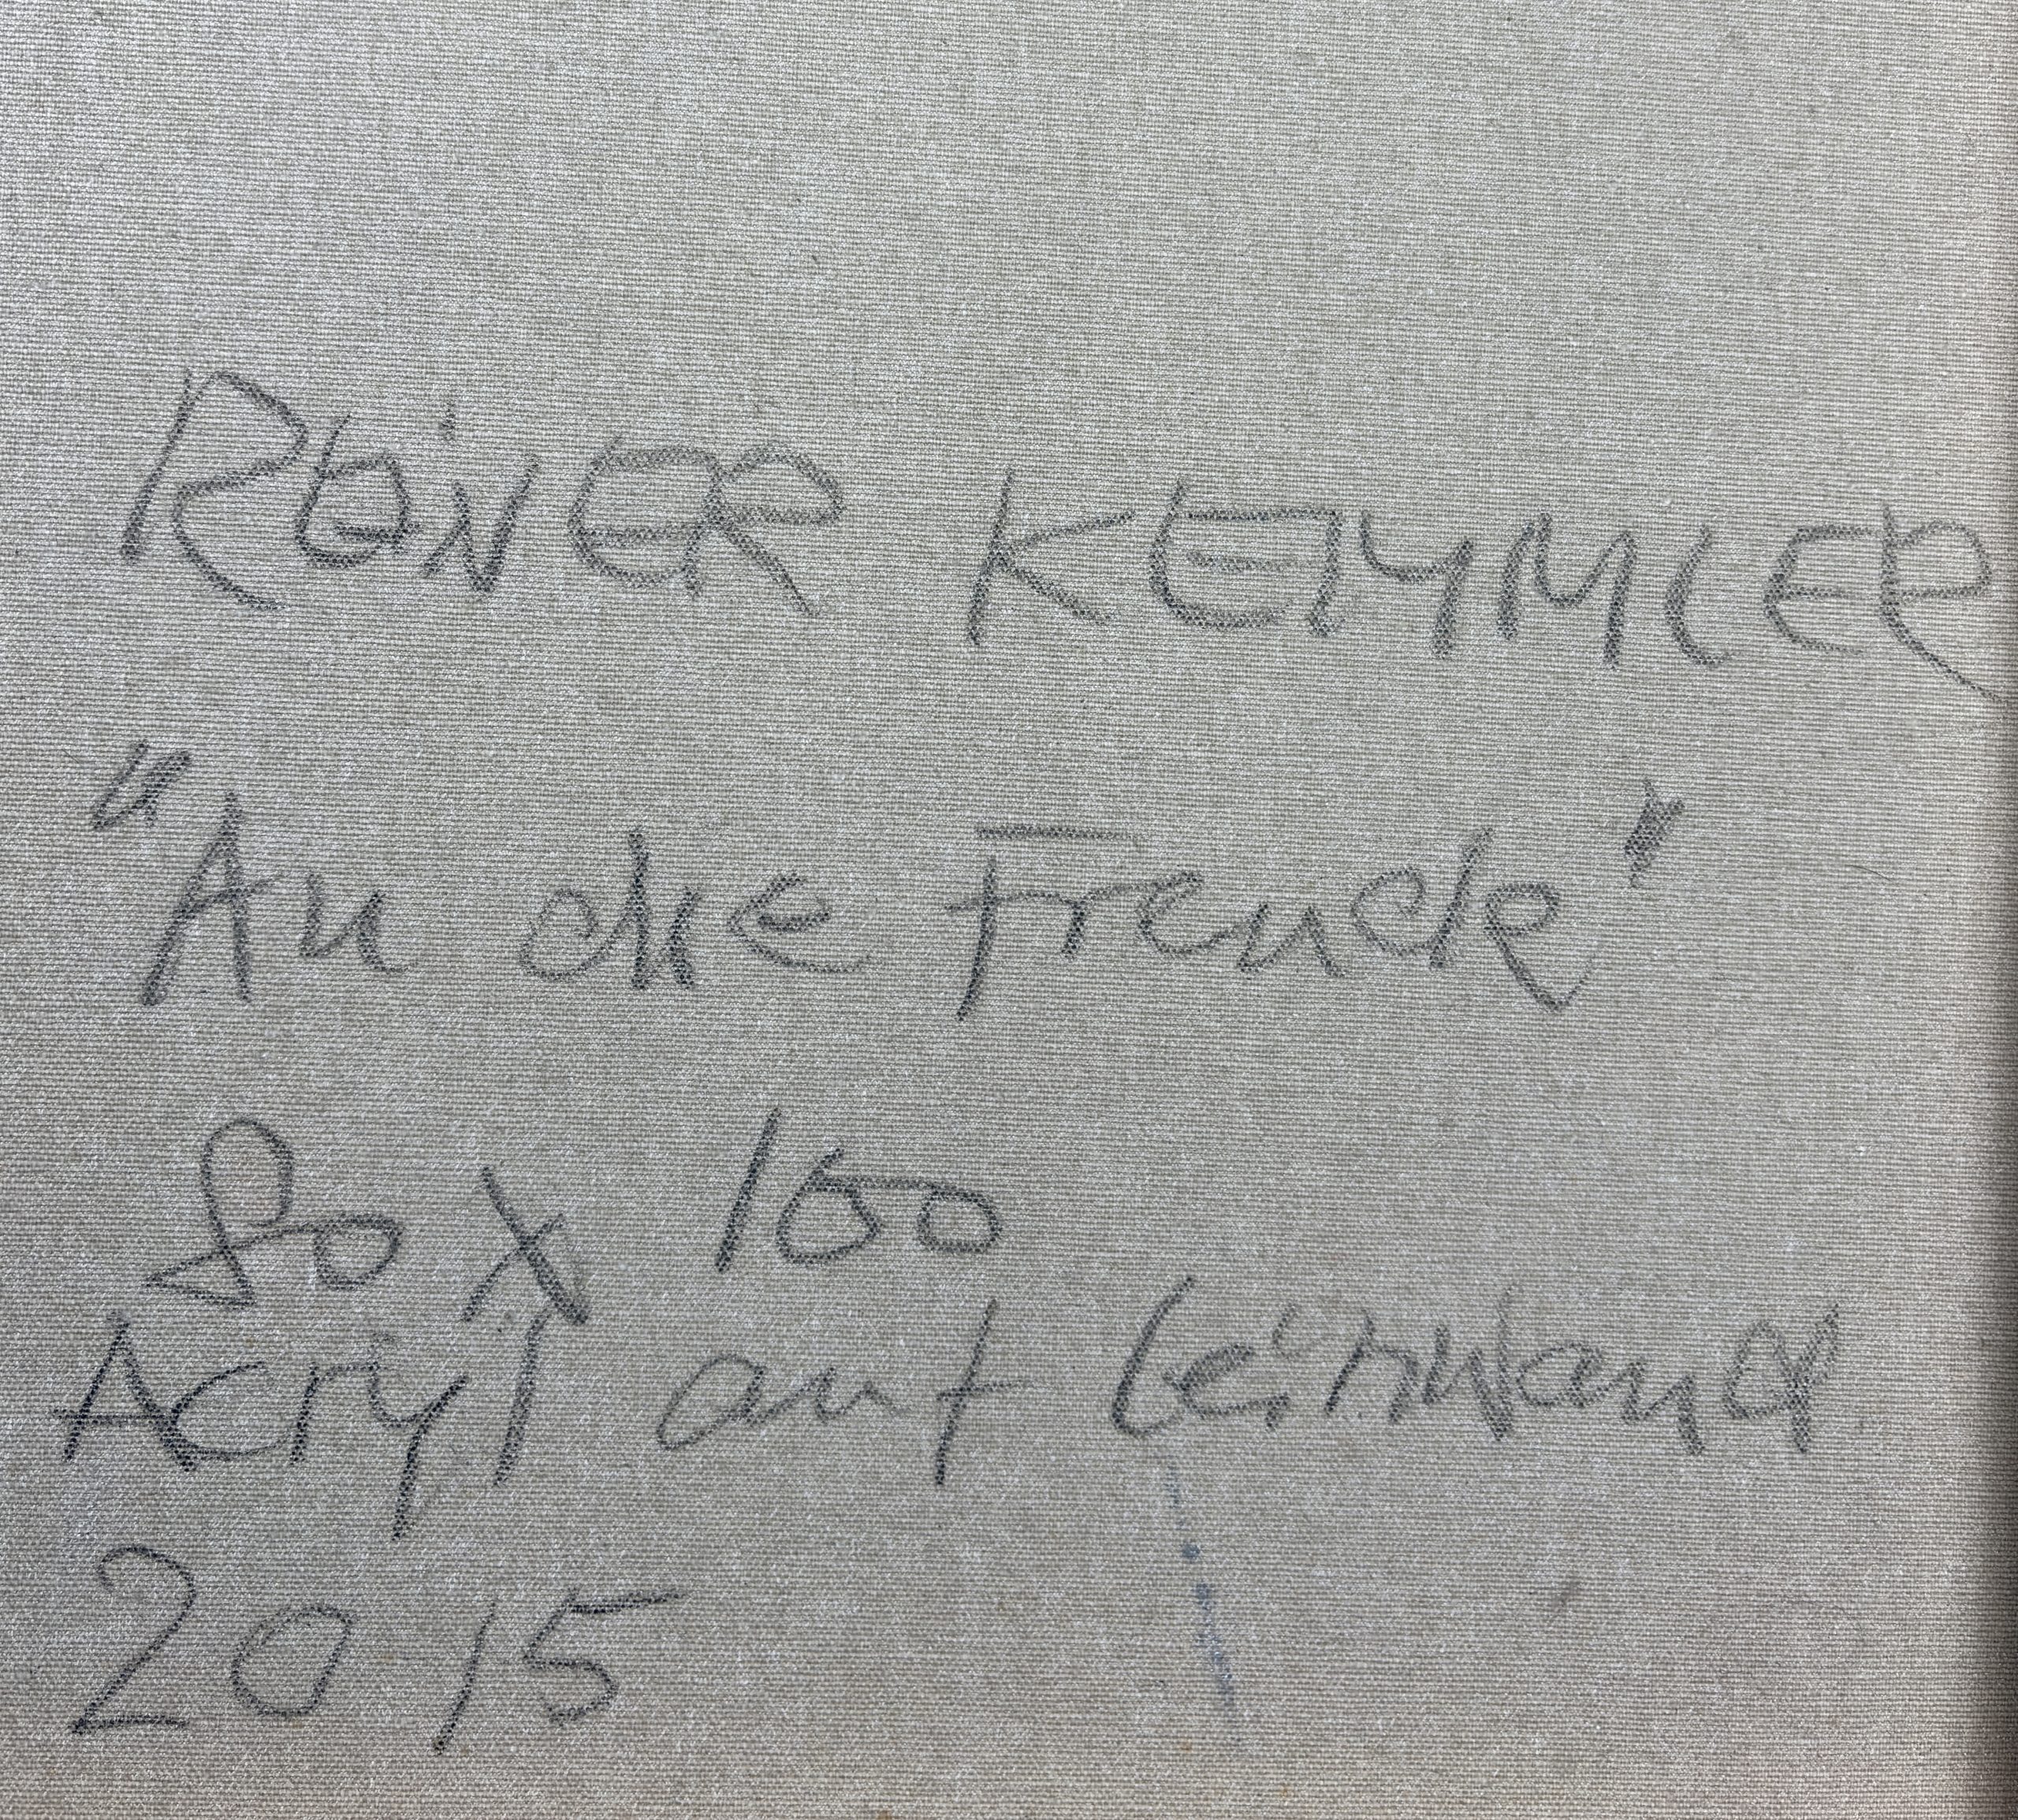 REINER KEMMLER
"An die Freude"
80 x 100
Acryl auf Leinwand
2015